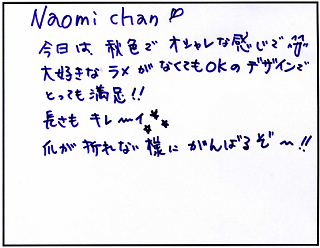 Naomi chan
今日は、秋色で オシャレな感じで^^
大好きな ラメ が なくても OK の デザインで
とっても 満足!!
長さも キレ〜イ
爪が 折れない 様に がんばるぞ〜!!